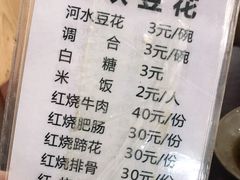 豆花
河水豆花 3元/碗
调合 3元/碗
白糖 3元
米饭 2元/人
红烧牛肉 40元/份
红烧肥肠 30元/份
红烧蹄花 30元/份
红烧排骨 30元/份